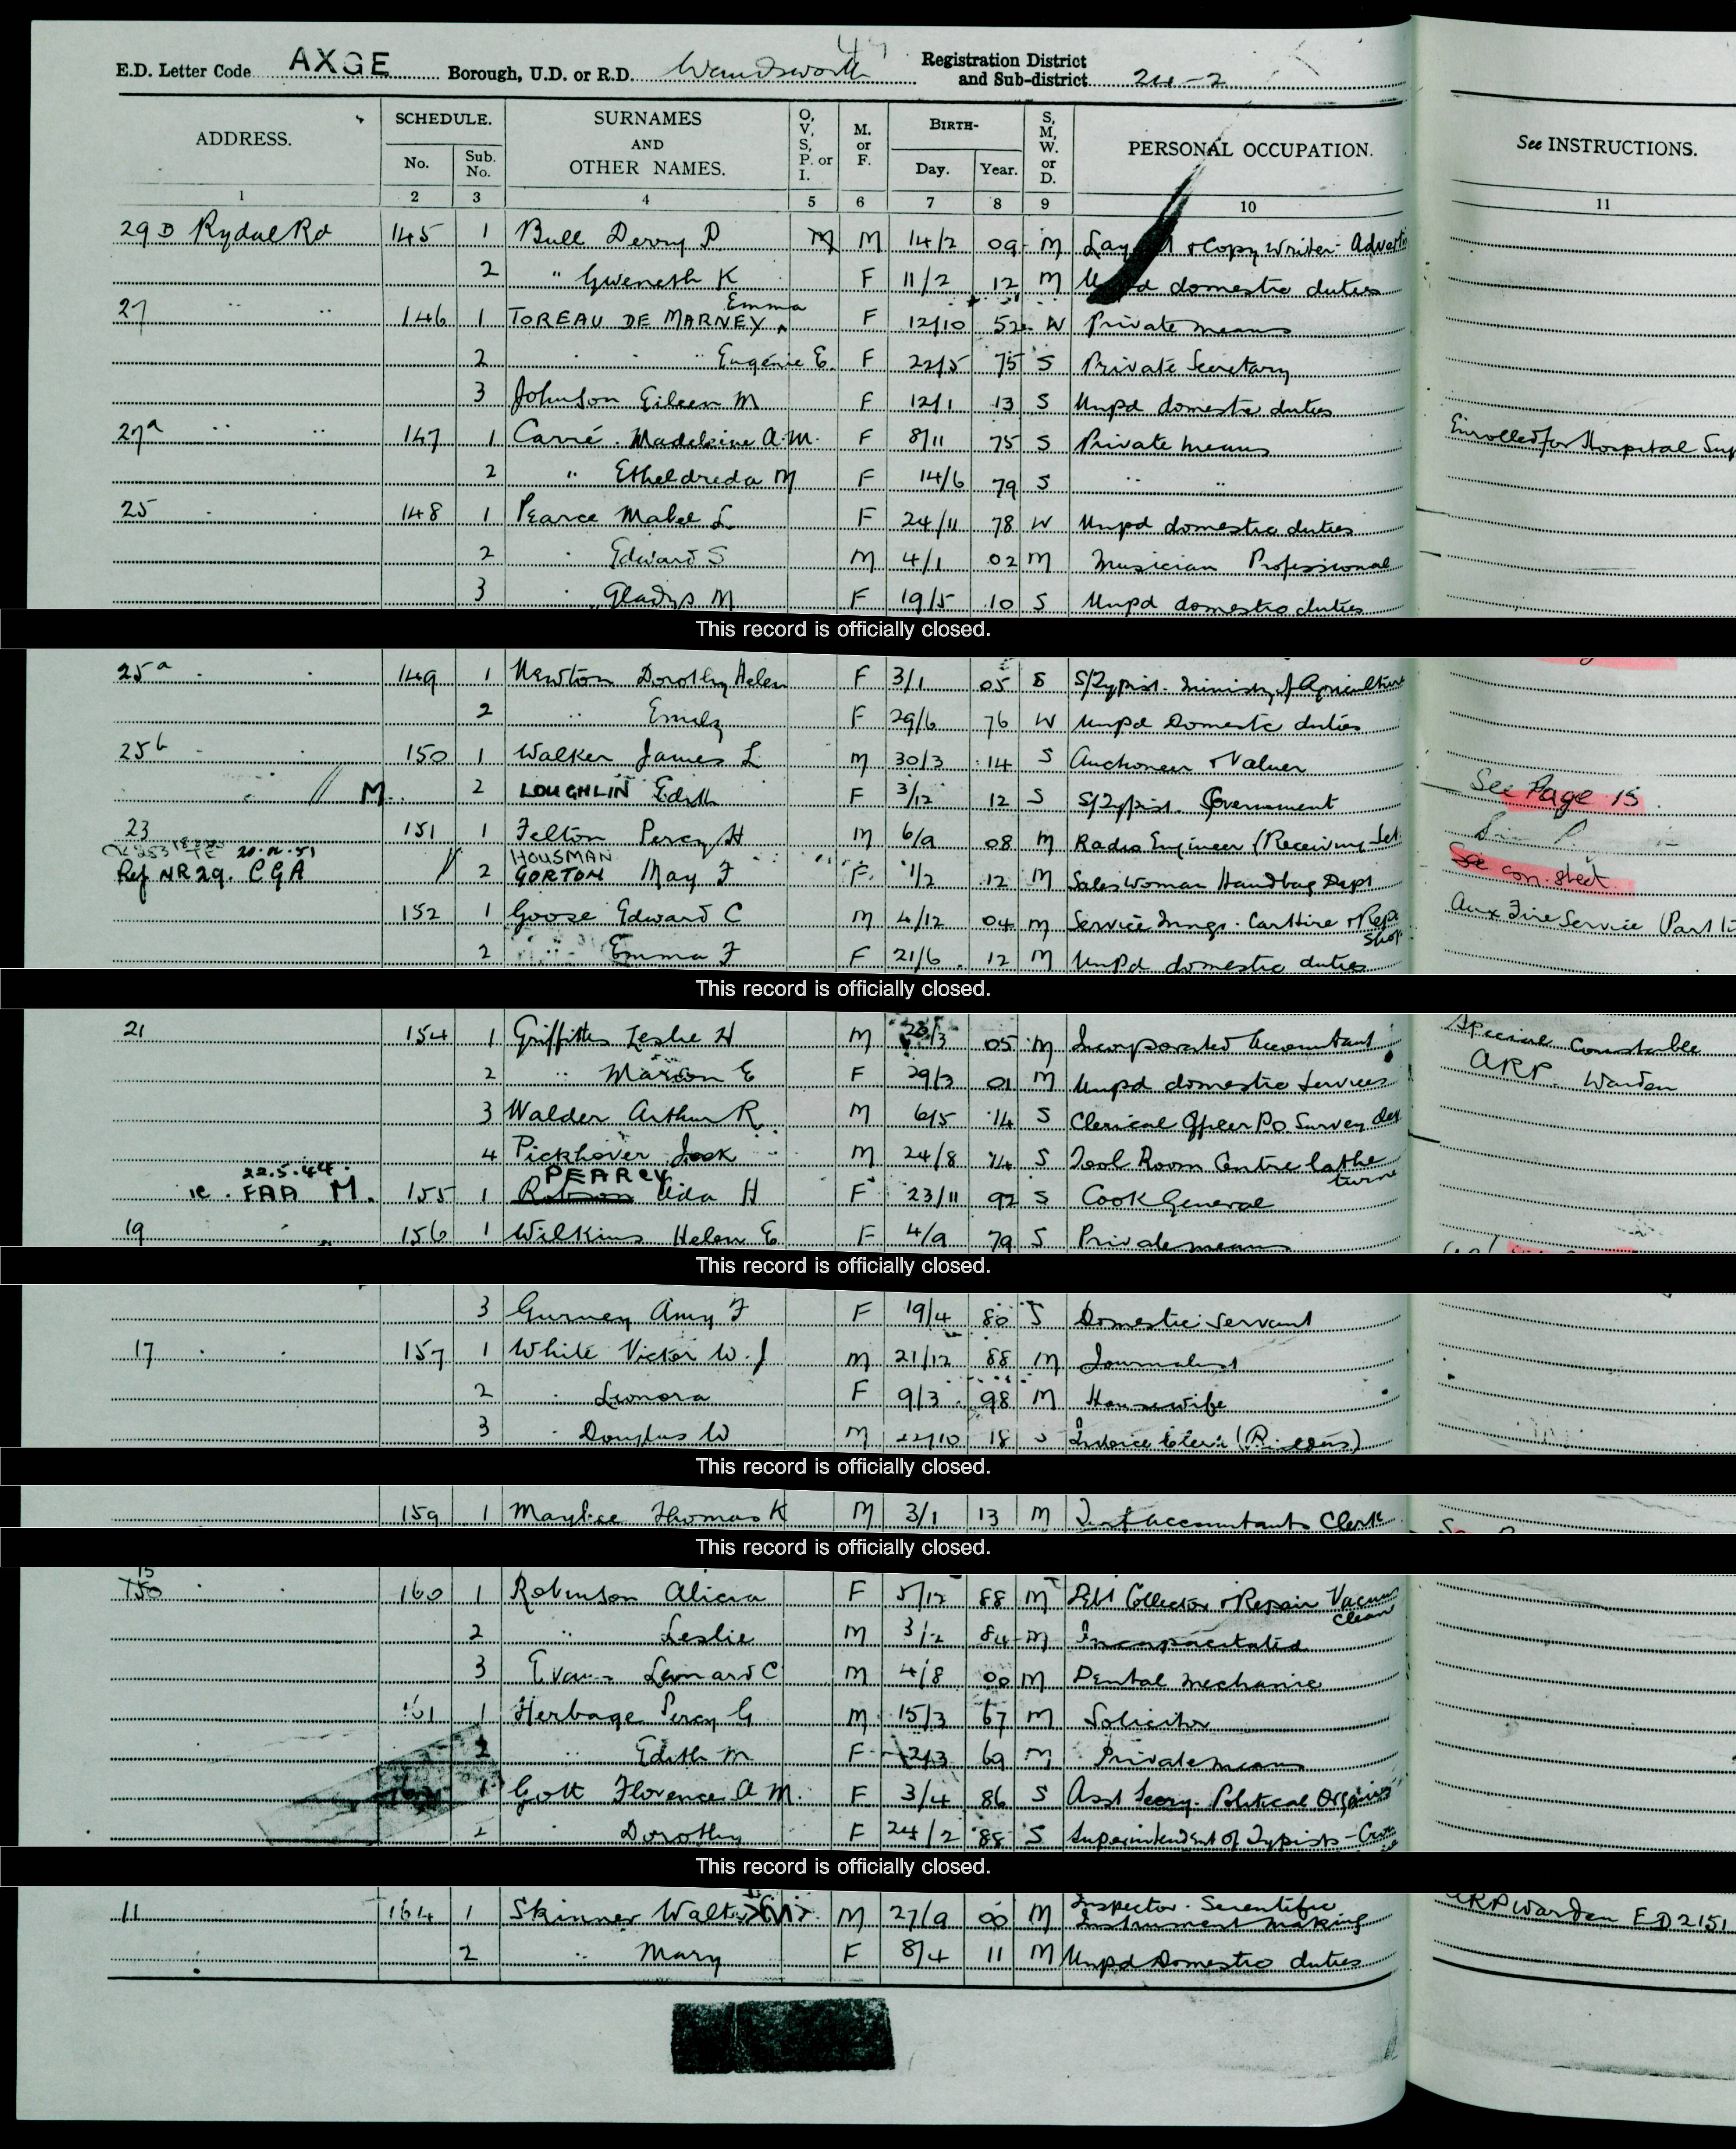 E.D. Letter Code AXGE Borough, U.D. or R.D. Wandsworth Registration District and Sub-district 24-2
ADDRESS. SCHEDULE. No. Sub. No. SURNAMES AND OTHER NAMES. O, V, S, P. or I. M. or F. BIRTH- Day. Year. S, M, W. or D. PERSONAL OCCUPATION. See INSTRUCTIONS.
1 2 3 4 5 6 7 8 9 10 11
29 B Rydal Rd 145 1 Bull Derry D M M 14/2 09 M & Copy Writer - Adverti
2 " Gweneth K F 11/2 12 M domestic duties
27 " 146 1 TOREAU DE MARNEY Emma F 12/10 52 W Private means
2 " " " Eugénie E. F 22/5 75 S Private Secretary
3 Johnson Eileen M F 12/1 13 S Unpd domestic duties
27a " " 147 1 Carré Madeleine A.M. F 8/11 75 S Private means Enrolled for Hospital Sup
2 " Etheldreda M F 14/6 79 S " "
25 148 1 Pearce Mabel L F 24/11 78 W Unpd domestic duties
2 " Edward S M 4/1 02 M Musician Professional
3 " Gladys M F 19/5 10 S Unpd domestic duties
This record is officially closed.
25a 149 1 Newton Dorothy Helen F 3/1 05 S S/Typist. Ministry of Agriculture
2 " Emily F 29/6 76 W Unpd Domestic duties
25b 150 1 Walker James L M 30/3 14 S Auctioneer & Valuer
M. 2 LOUGHLIN Edith F 3/12 12 S S/Typist. Government See Page 15
23 151 1 Felton Percy H M 6/9 08 M Radio Engineer (Receiving Set
20.12.51 HOUSMAN
Ref NR29. CGA 2 GORTON May F F 1/2 12 M Saleswoman Handbag Dept See con. sheet
152 1 Goose Edward C M 4/12 04 M Service Mngr. Car Hire & Repr Shop Aux Fire Service (Part
2 " Emma F F 21/6 12 M Unpd domestic duties
This record is officially closed.
21 154 1 Griffiths Leslie H M 23/3 05 M Incorporated Accountant Special Constable
2 " Marion E F 29/3 01 M Unpd domestic services ARP Warden
3 Walder Arthur R M 6/5 14 S Clerical Officer PO Survey
4 Pickhover Jack M 24/8 14 S Tool Room Centre lathe turne
22.5.44. PEARCY
FAA M. 155 1 Robson Aida H F 23/11 92 S Cook General
19 156 1 Wilkins Helen E F 4/9 79 S Private means
This record is officially closed.
3 Gurney Amy F F 19/4 80 S Domestic Servant
17 157 1 White Victor W. J M 21/12 88 M Journalist
2 " Leonora F 9/3 98 M Housewife
3 " Douglas W M 22/10 18 S Invoice Clerk (Builders)
This record is officially closed.
159 1 Thomas K M 3/1 13 M Accountants Clerk
This record is officially closed.
15 160 1 Robinson Alicia F 5/12 88 M Debt Collector & Repair Vacuum Clean
2 " Leslie M 3/2 84 M Incapacitated
3 Evans Leonard C M 4/8 00 M Dental Mechanic
161 1 Herbage Percy G M 15/3 67 M Solicitor
2 " Edith M F 2/3 69 M Private means
1 Gott Florence A M. F 3/4 86 S Asst Secry. Political Organis
2 " Dorothy F 24/2 88 S Superintendent of Typists -
This record is officially closed.
11 164 1 Skinner Walter M 27/9 00 M Inspector. Scientific Instrument Making ARP Warden ED 2151
2 " Mary F 8/4 11 M Unpd Domestic duties